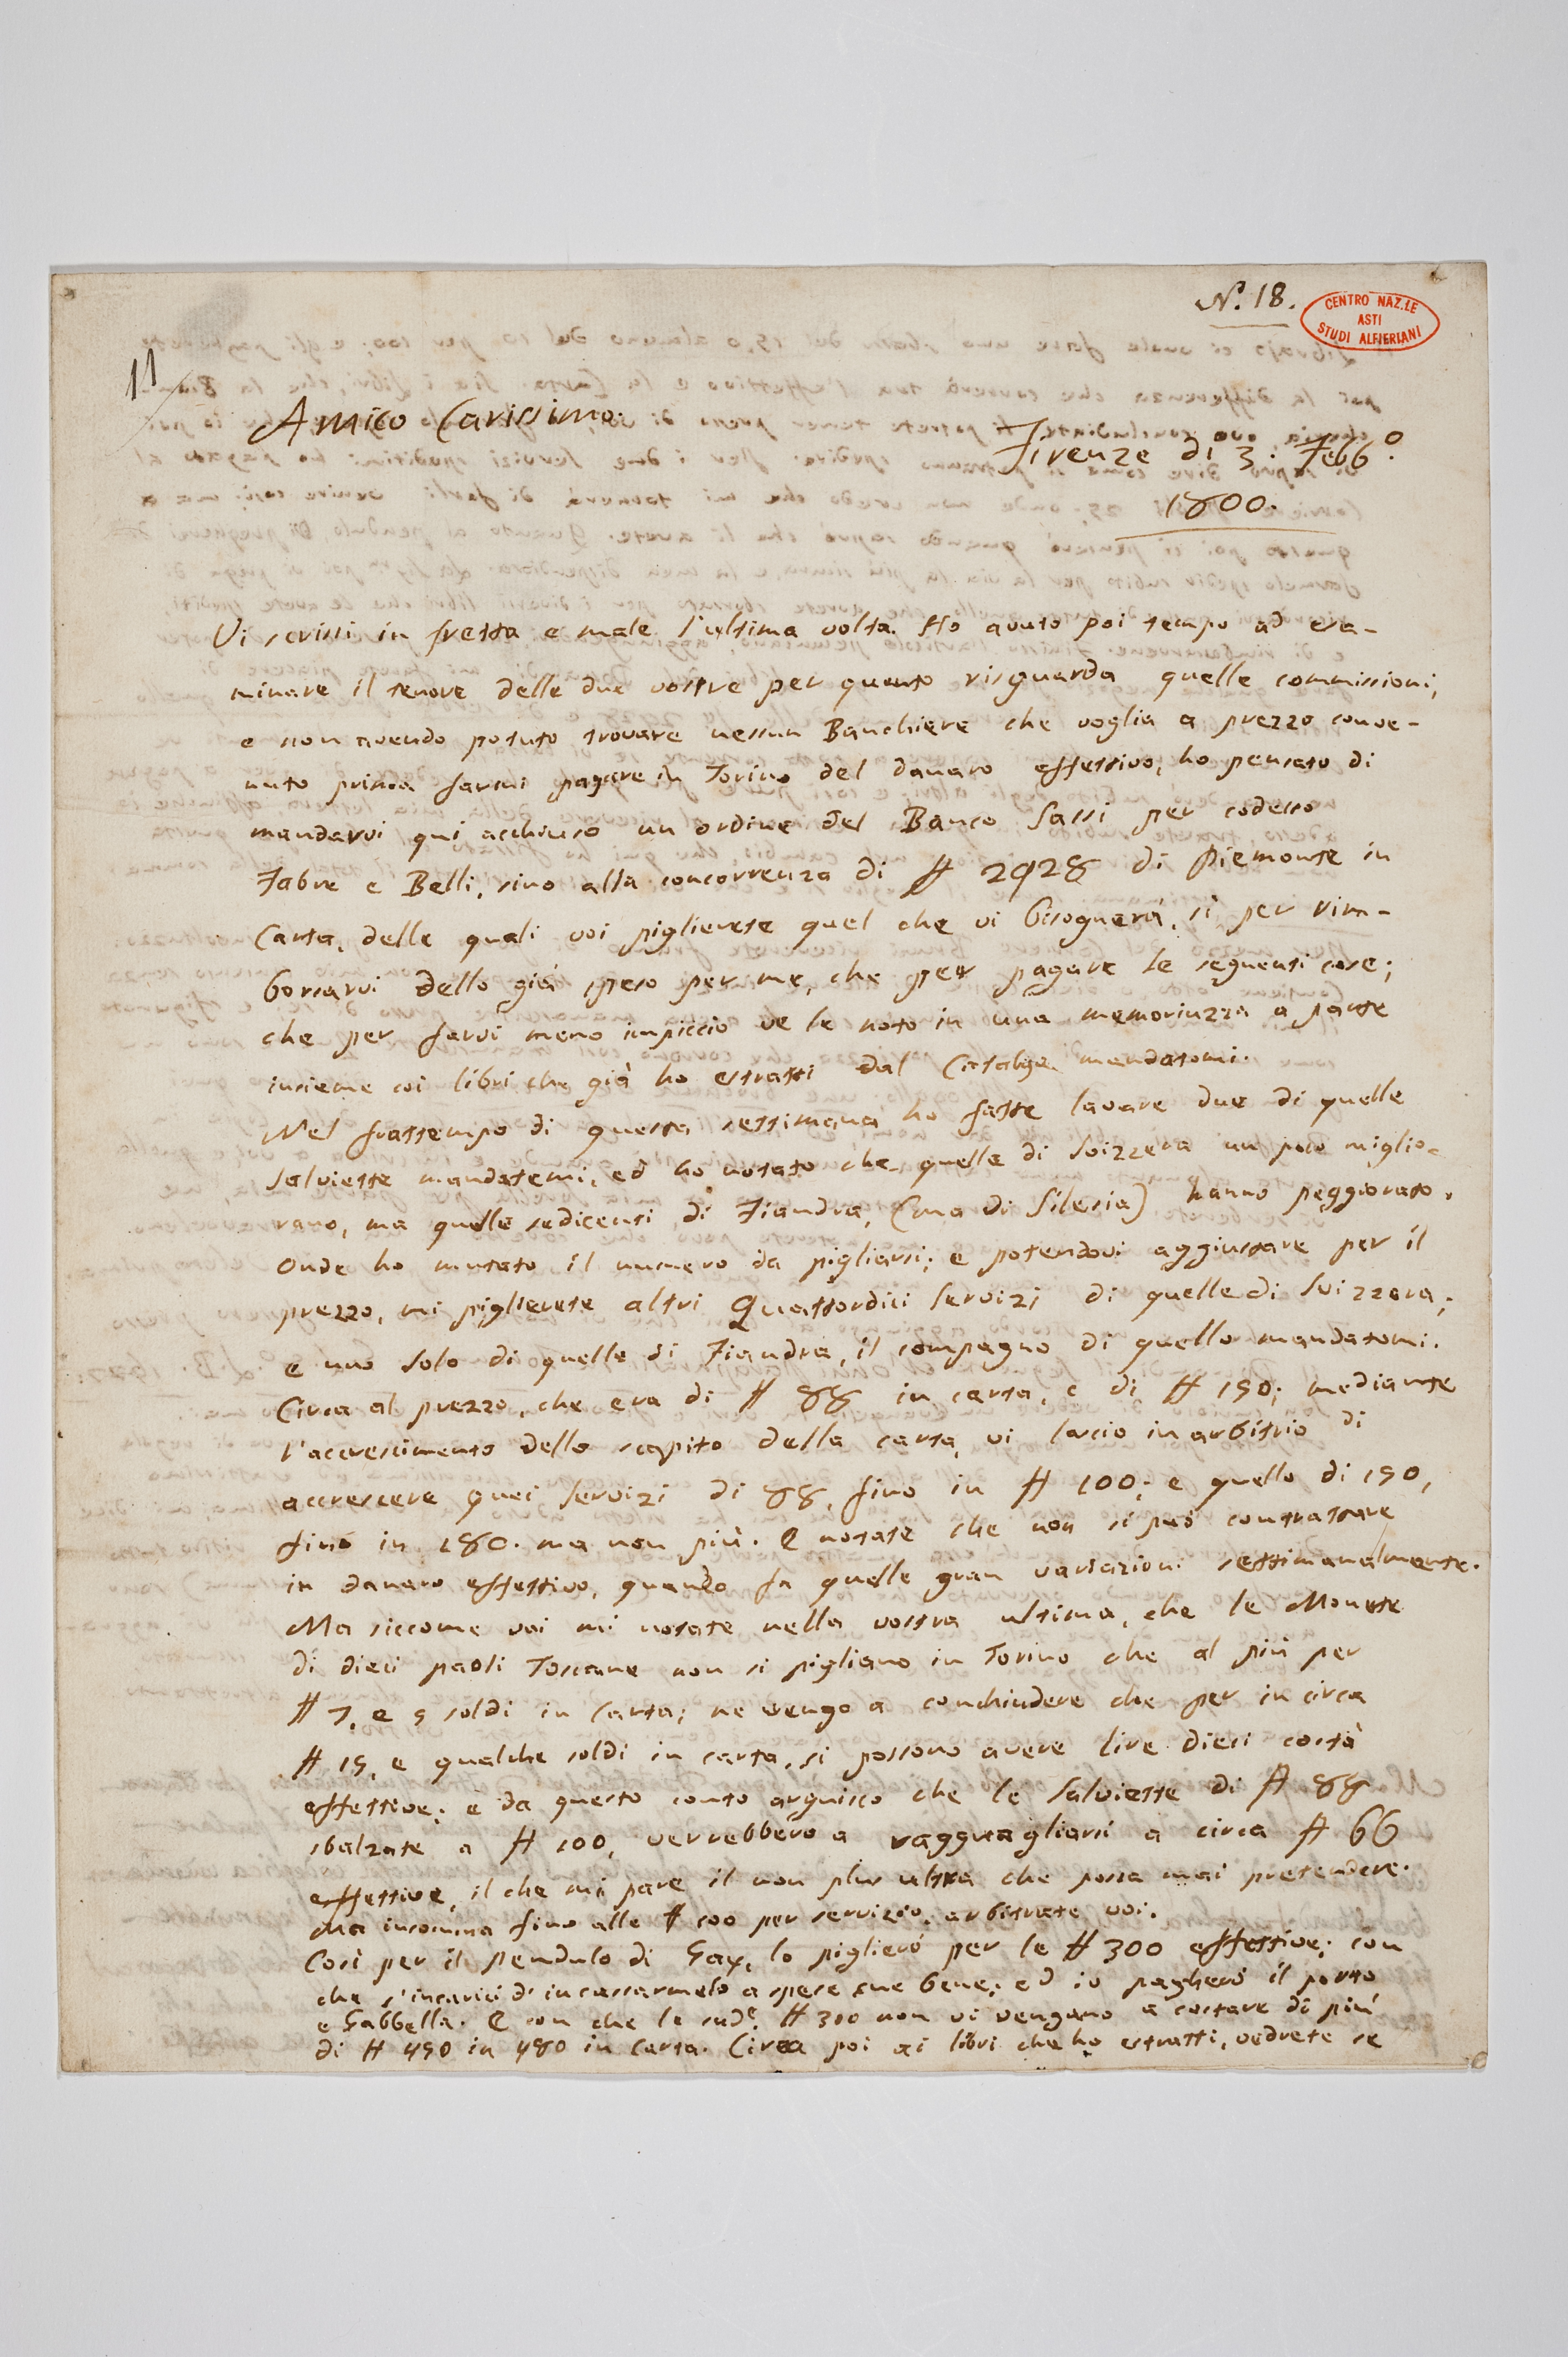 N.º 18.
CENTRO NAZ.LE
ASTI
STUDI ALFIERIANI
11
Amico Carissimo.
Firenze dì 3. Febb.º
1800.
Vi scrissi in fretta e male l'ultima volta. Ho avuto poi tempo ad esa-
minare il tenore delle due vostre per quanto risguarda quelle commissioni,
e non avendo potuto trovare nessun Banchiere che voglia a prezzo conve-
nuto prima farmi pagare in Torino del danaro effettivo, ho pensato di
mandarvi qui acchiuso un ordine del Banco Sassi per codesto
Fabre e Belli, sino alla concorrenza di ₶ 2928 di Piemonte in
Carta, delle quali voi piglierete quel che vi bisognerà, sì per rim-
borsarvi dello già speso per me, che per pagare le seguenti cose;
che per farvi meno impiccio ve le noto in una memoriuzza a parte
insieme coi libri che già ho estratti dal Catalogo mandatomi.
Nel frattempo di questa settimana ho fatte lavare due di quelle
salviette mandatemi, ed ho notato che quelle di Svizzera un poco miglio-
rano, ma quelle sedicenti di Fiandra, (ma di Silesia) hanno peggiorato.
Onde ho mutato il numero da pigliarsi; e potendovi aggiustare per il
prezzo, mi piglierete altri Quattordici servizi di quelle di Svizzera;
e uno solo di quelle di Fiandra, il compagno di quello mandatomi.
Circa al prezzo, che era di ₶ 88 in carta, e di ₶ 150; mediante
l'accrescimento dello scapito della carta, vi lascio in arbitrio di
accrescere quei servizi di 88, fino in ₶ 100; e quello di 150,
fino in 180. ma non più. E notate che non si può contrattare
in danaro effettivo, quando fa quelle gran variazioni settimanalmente.
Ma siccome voi mi notate nella vostra ultima, che le Monete
di dieci paoli Toscane non si pigliano in Torino che al più per
₶ 7, e 9 soldi in Carta; ne vengo a conchiudere che per in circa
₶ 15, e qualche soldi in carta, si possono avere lire dieci costà
effettive; e da questo conto arguisco che le Salviette di ₶ 88
sbalzate a ₶ 100, verrebbero a ragguagliarsi a circa ₶ 66
effettive, il che mi pare il non plus ultra che possa mai pretendere.
Ma insomma fino alle ₶ 100 per servizio, arbitrate voi.
Così per il Pendulo di Gay, lo piglierò per le ₶ 300 effettive; con
che s'incarici d'incassarmelo a spese sue bene; ed io pagherò il porto
e Gabbella. E con che le sud.e ₶ 300 non vi vengano a costare di più
di ₶ 450 in 480 in Carta. Circa poi ai libri che ho estratti, vedrete se